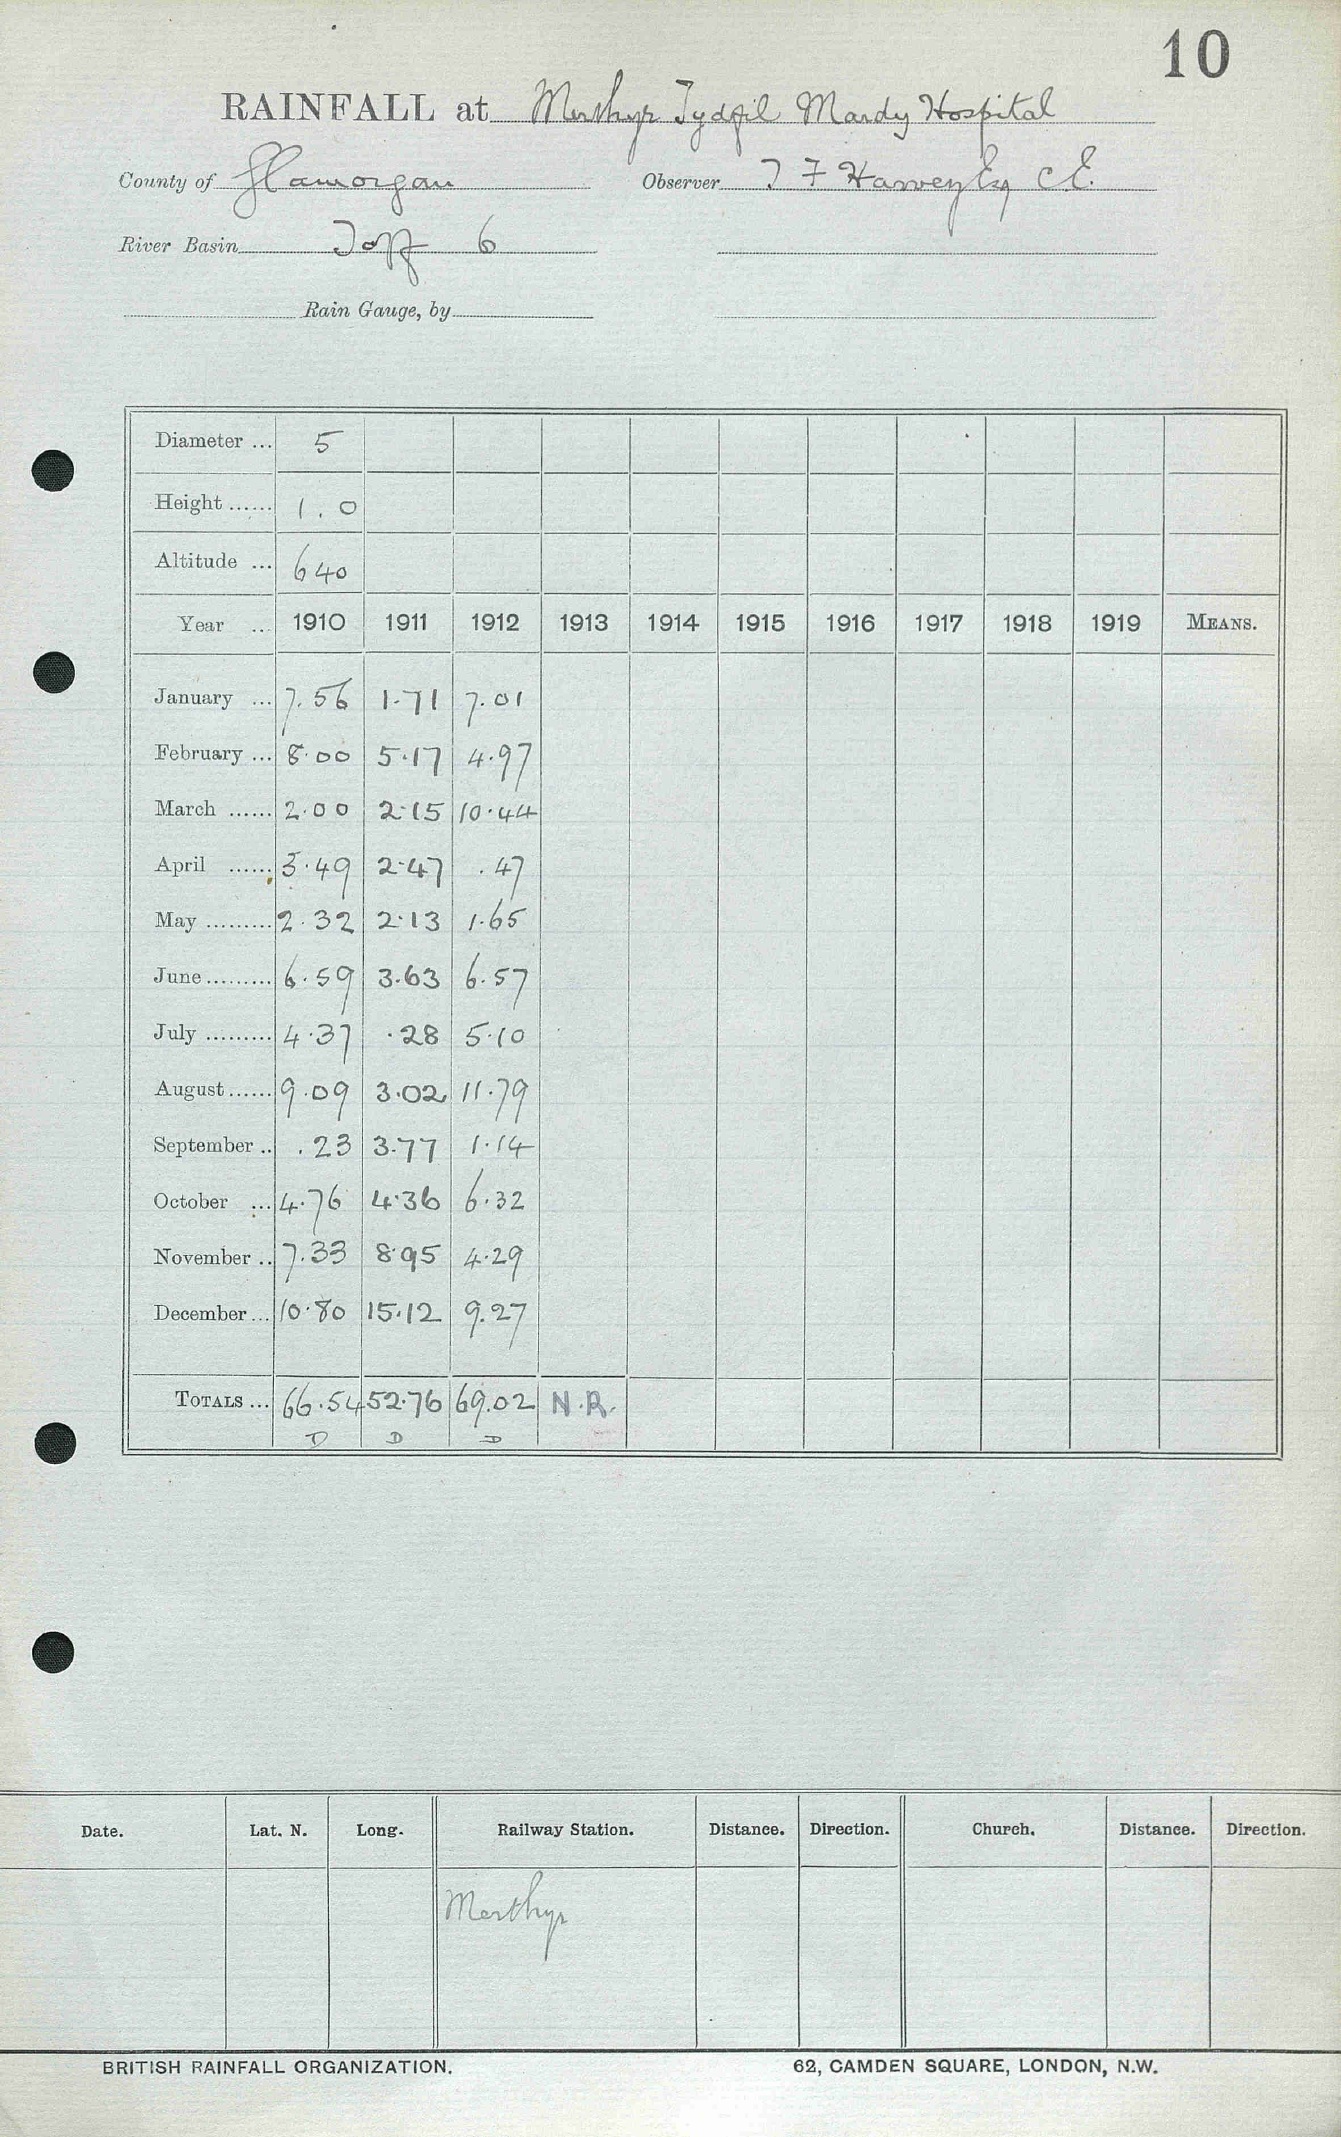 10
RAINFALL at Merthyr Tydfil Mardy Hospital
County of Glamorgan Observer T F Harvey Esq C.E.
River Basin Taff 6
Rain Gauge, by
Diameter ... 5
Height ...... 1.0
Altitude ... 640
Year ... 1910 1911 1912 1913 1914 1915 1916 1917 1918 1919 MEANS.
January ... 7.56 1.71 7.01
February ... 8.00 5.17 4.97
March ...... 2.00 2.15 10.44
April ...... 3.49 2.47 .47
May ......... 2.32 2.13 1.65
June ......... 6.59 3.63 6.57
July ......... 4.37 .28 5.10
August ...... 9.09 3.02 11.79
September .. .23 3.77 1.14
October ... 4.76 4.36 6.32
November .. 7.33 8.95 4.29
December ... 10.80 15.12 9.27
TOTALS ... 66.54 52.76 69.02 N.R.
D D D
Date. Lat. N. Long. Railway Station. Distance. Direction. Church. Distance. Direction.
Merthyr
BRITISH RAINFALL ORGANIZATION. 62, CAMDEN SQUARE, LONDON, N.W.